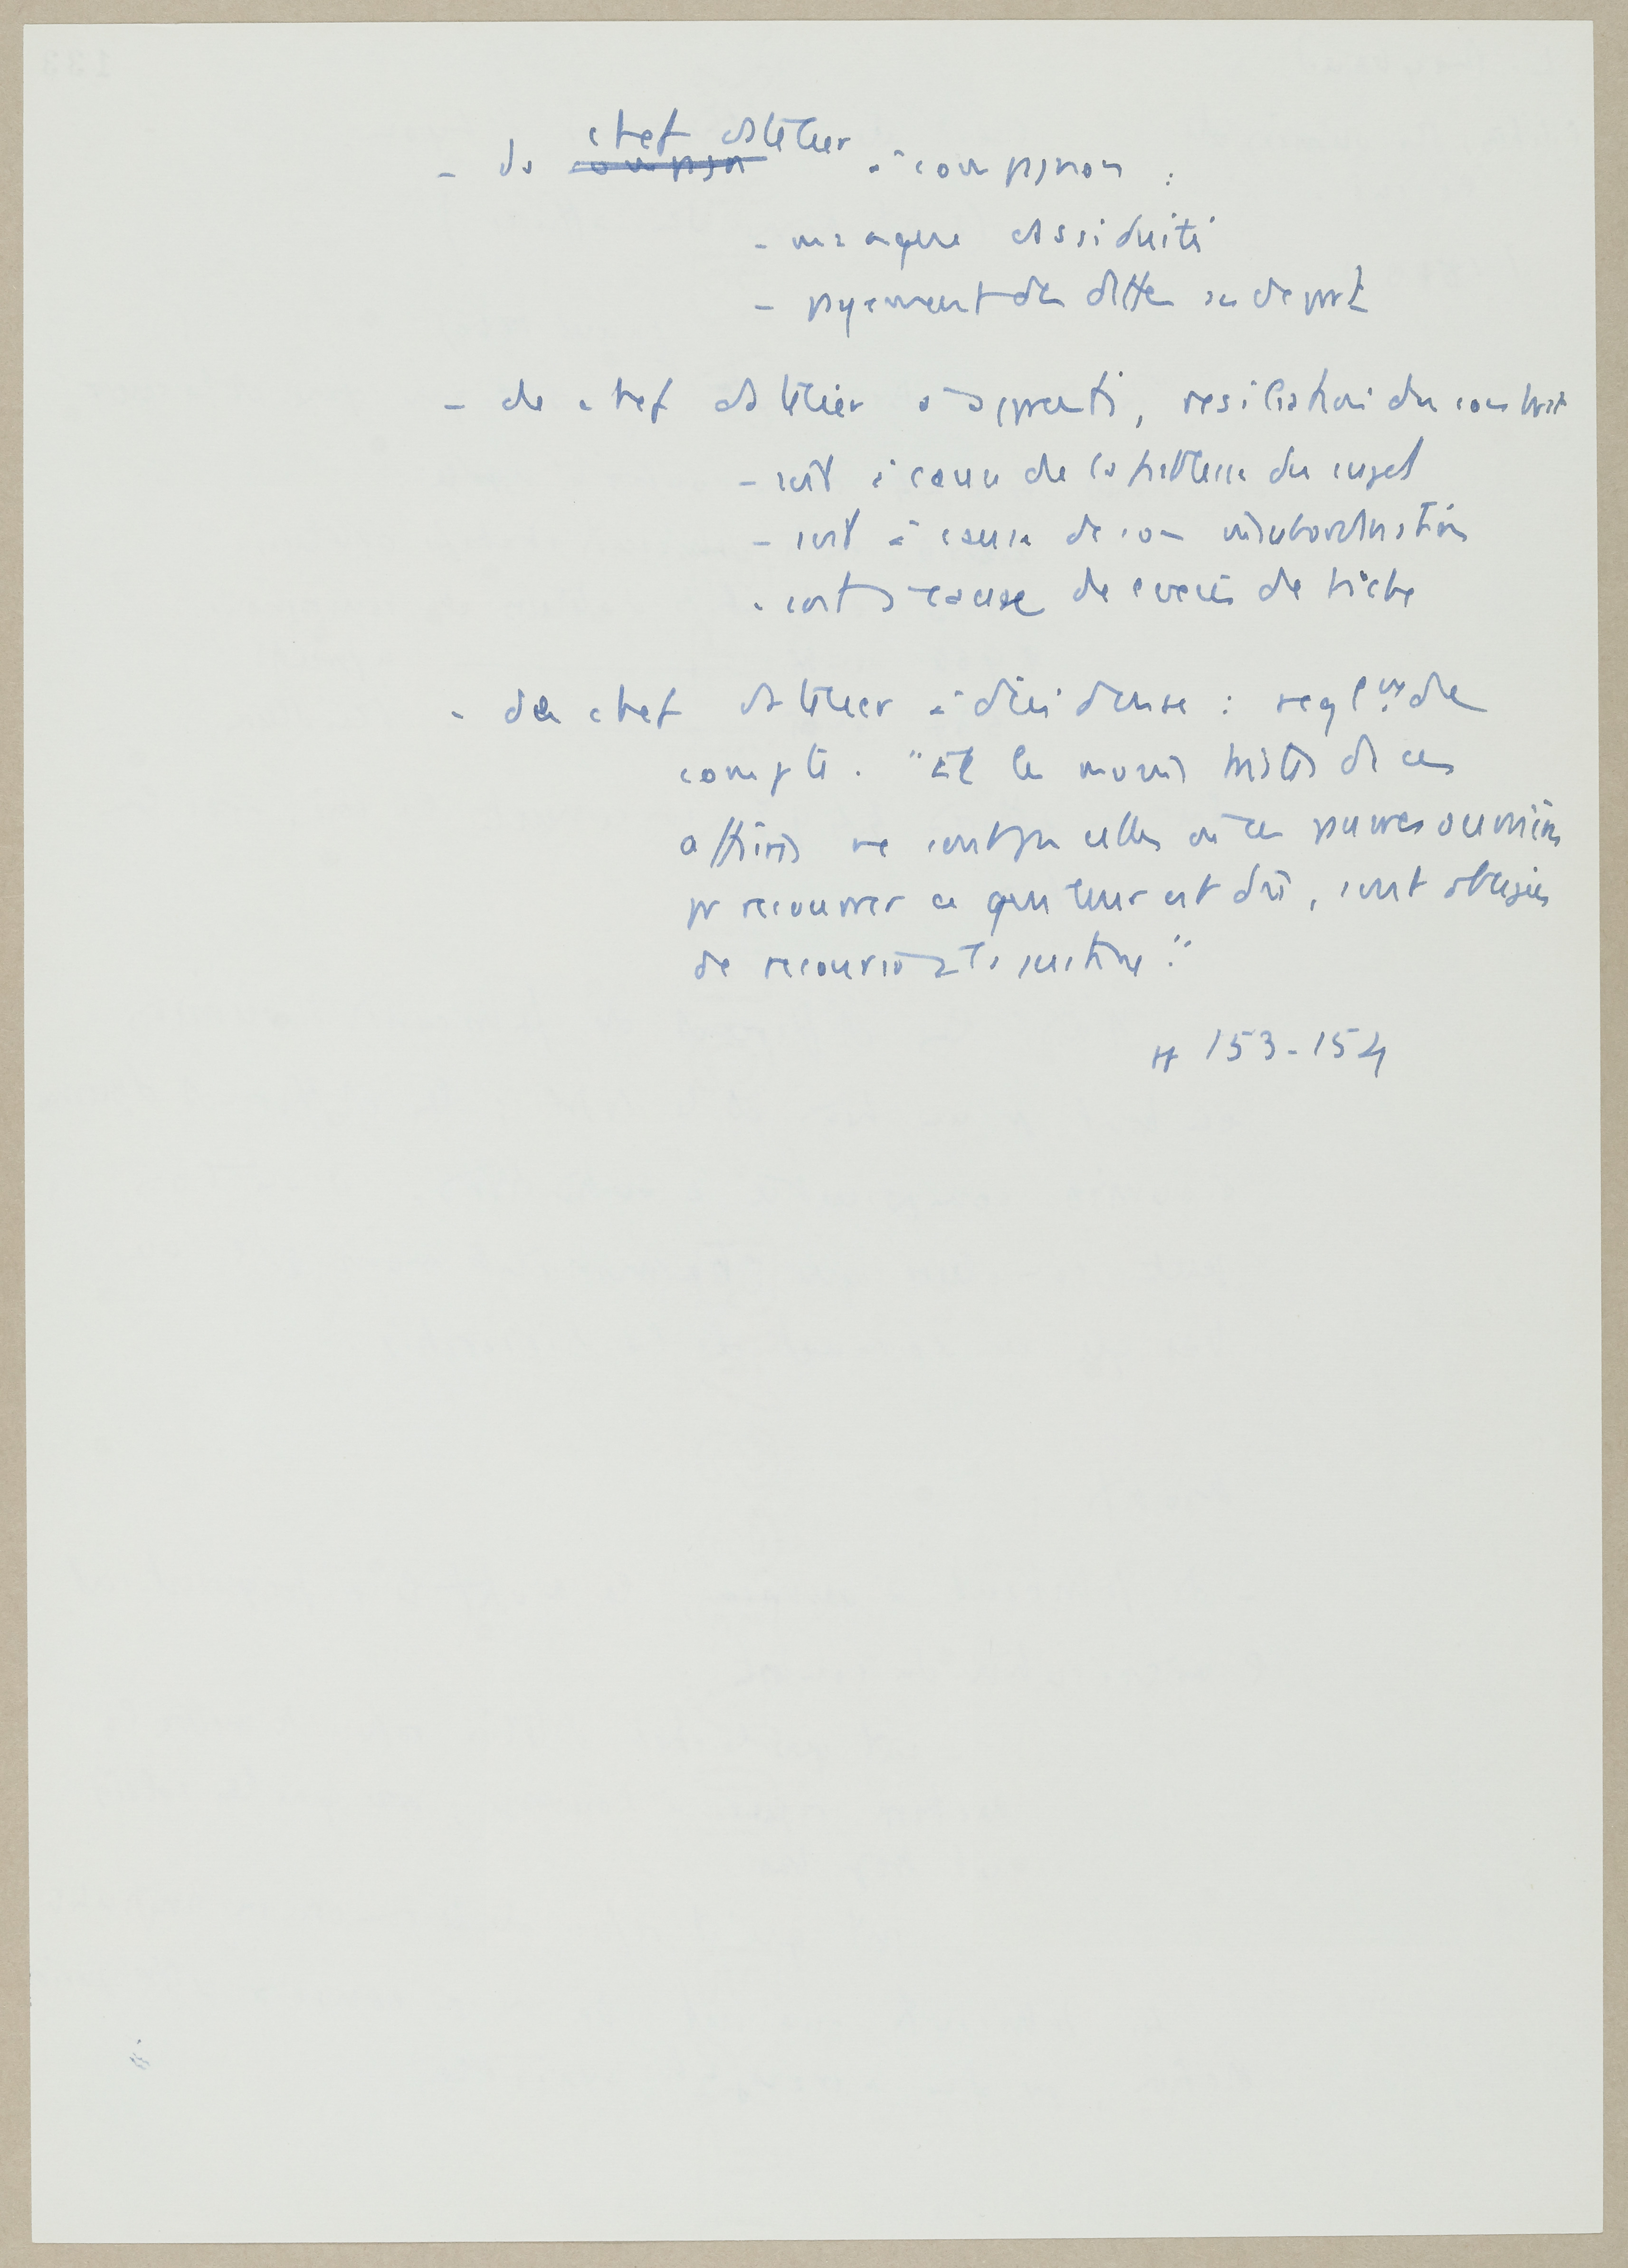 - de chef d'atelier à compagnon :
- manque d'assiduité
- payement des dettes au départ
- de chef d'atelier à apprenti, résiliation du contrat
- soit à cause de la faiblesse du sujet
- soit à cause de son insubordination
- soit à cause de excès de tâche
- de chef d'atelier à dévideuse : reglt de
compte. "Et les moins tristes de ces
affaires ne sont pas celles où ces pauvres ouvrières
pr recouvrer ce qui leur est dû, sont obligées
de recourir à la justice."
153-154